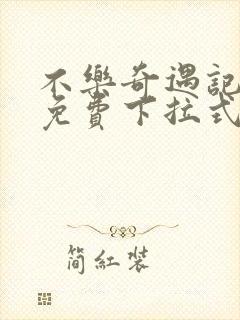 不樂奇遇記
免費下拉式
簡紅裝